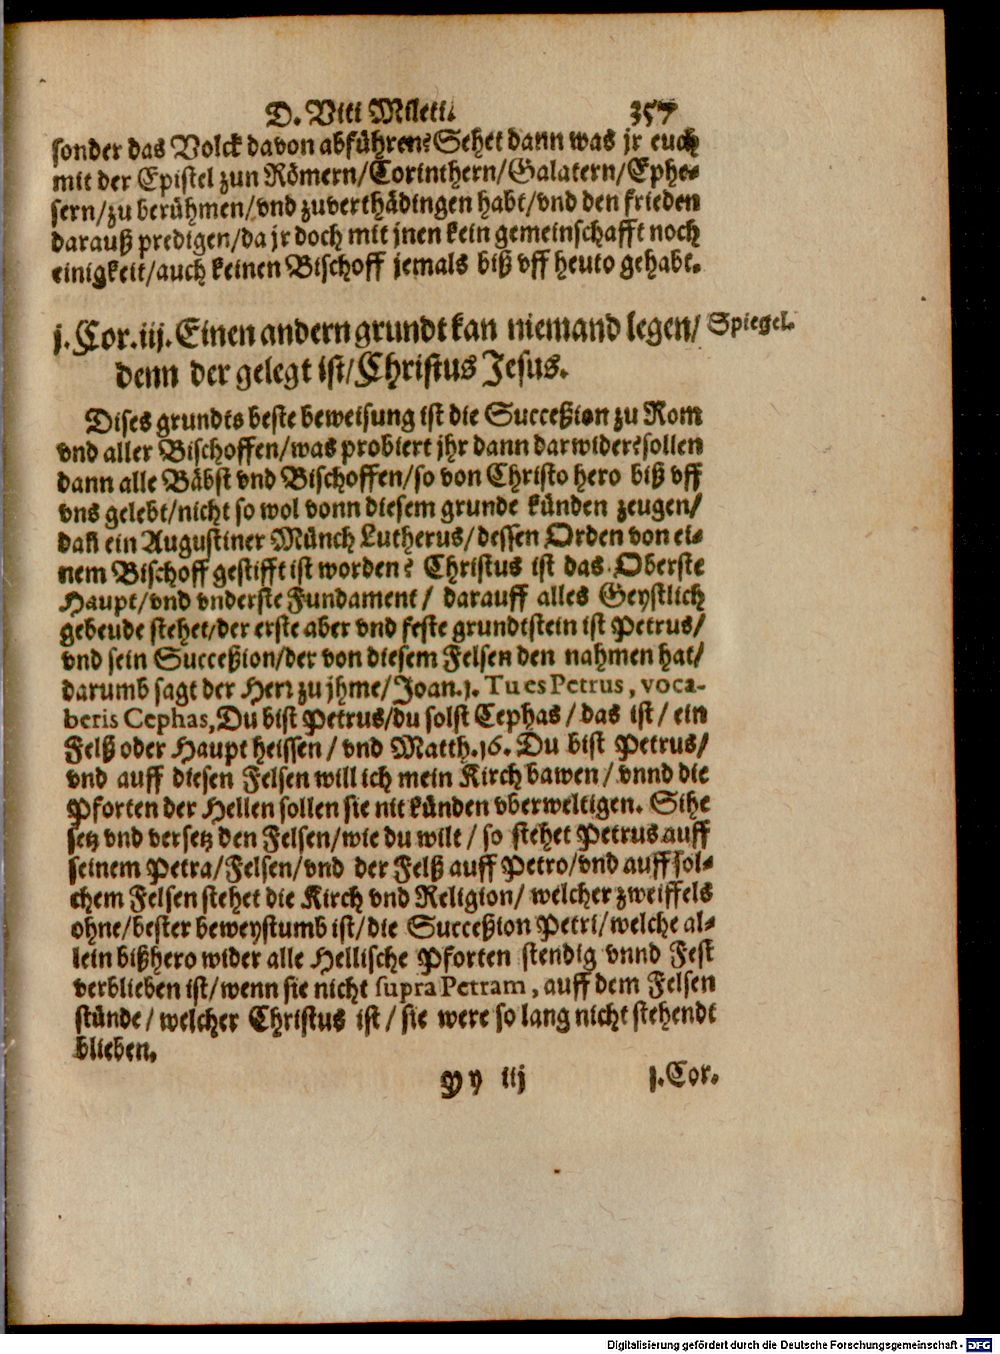 D. Viti Mileti. 357
sonder das Volck davon abführen? Sehet dann was jr euch
mit der Epistel zun Römern/Corinthern/Galatern/Ephe-
sern/zu berühmen/vnd zuverthädingen habt/vnd den frieden
darauß predigen/da jr doch mit jnen kein gemeinschafft noch
einigkeit/auch keinen Bischoff jemals biß vff heuto gehabt.
j. Cor. iij. Einen andern grundt kan niemand legen/ Spiegel.
denn der gelegt ist/Christus Jesus.
Dises grundts beste beweisung ist die Succeßion zu Rom
vnd aller Bischoffen/was probiert jhr dann darwider? sollen
dann alle Bäbst vnd Bischoffen/so von Christo hero biß vff
vns gelebt/nicht so wol vonn diesem grunde künden zeugen/
dañ ein Augustiner Münch Lutherus/dessen Orden von ei-
nem Bischoff gestifft ist worden? Christus ist das Oberste
Haupt/vnd vnderste Fundament/ darauff alles Geystlich
gebeude stehet/der erste aber vnd feste grundtstein ist Petrus/
vnd sein Succeßion/der von diesem Felsen den nahmen hat/
darumb sagt der Herr zu jhme/Joan.j. Tu es Petrus, voca-
beris Cephas, Du bist Petrus/du solst Cephas/das ist/ein
Felß oder Haupt heissen/vnd Matth.16. Du bist Petrus/
vnd auff diesen Felsen will ich mein Kirch bawen/vnnd die
Pforten der Hellen sollen sie nit künden vberweltigen. Sihe
setz vnd versetz den Felsen/wie du wilt/so stehet Petrus auff
seinem Petra/Felsen/vnd der Felß auff Petro/vnd auff sol-
chem Felsen stehet die Kirch vnd Religion/welcher zweiffels
ohne/bester beweystumb ist/die Succeßion Petri/welche al-
lein bißhero wider alle Hellische Pforten stendig vnnd Fest
verblieben ist/wenn sie nicht supra Petram, auff dem Felsen
stünde/welcher Christus ist/sie were so lang nicht stehendt
blieben.
Yy iij j. Cor.
Digitalisierung gefördert durch die Deutsche Forschungsgemeinschaft - DFG